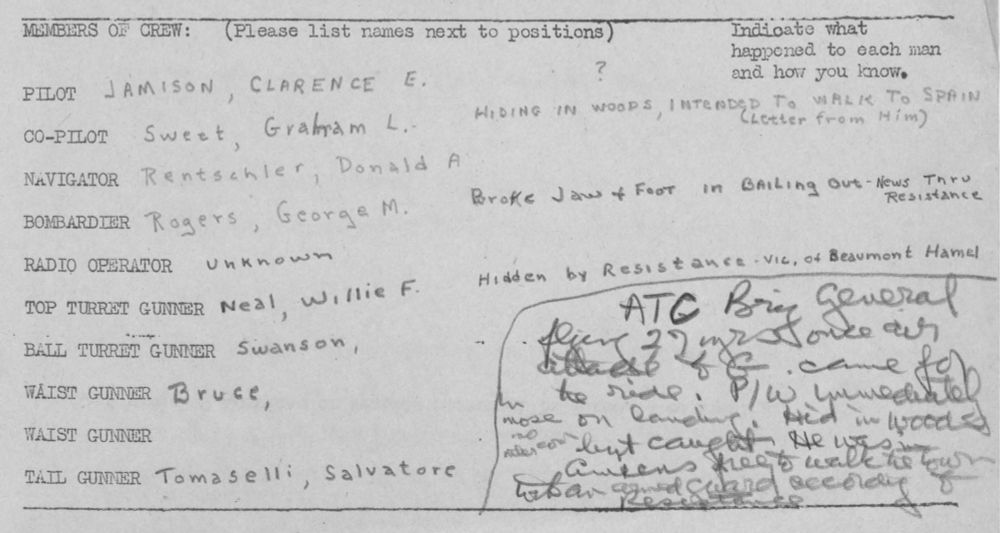 MEMBERS OF CREW: (Please list names next to positions) Indicate what
happened to each man
and how you know.
PILOT JAMISON, CLARENCE E. ?
CO-PILOT Sweet, Graham L. HIDING IN WOODS, INTENDED TO WALK TO SPAIN
(Letter from Him)
NAVIGATOR Rentschler, Donald A
BOMBARDIER Rogers, George M. Broke Jaw & Foot in Bailing Out - News Thru
Resistance
RADIO OPERATOR unknown
TOP TURRET GUNNER Neal, Willie F. Hidden by Resistance - Vic. of Beaumont Hamel
BALL TURRET GUNNER Swanson,
WAIST GUNNER Bruce,
WAIST GUNNER
TAIL GUNNER Tomaselli, Salvatore
ATC Brig General
flying 27 yrs once air
of G. came for
the ride. P/W immediately
in nose on landing. Hid in woods
but caught. He was in
free to walk the town
armed guard according to
Resistance